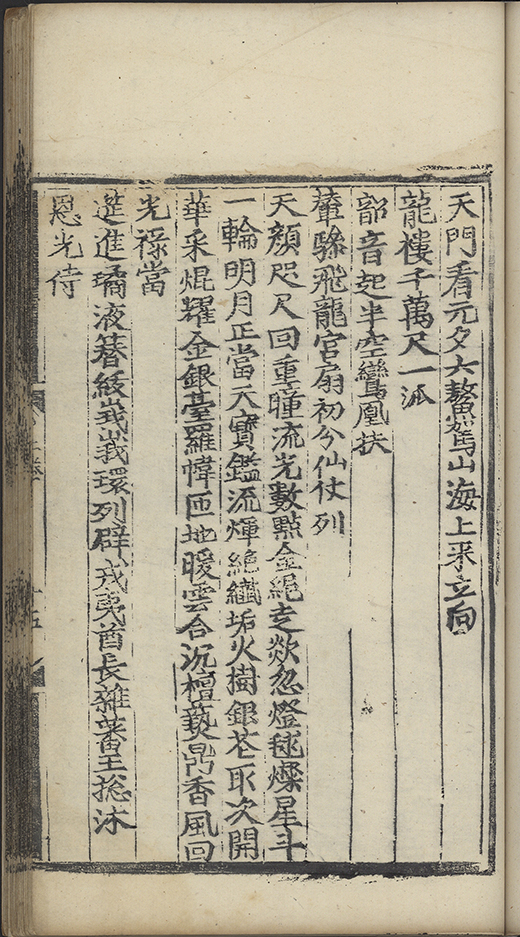 天門看元夕六鰲駕山海上来立向
龍樓千萬尺一派
韶音起半空鸞凰扶
輦驂飛龍宮扇初分仙仗列
天顔咫尺回重瞳流光數點金繩走欻忽燈毬燦星斗
一輪明月正當天寳鑑流輝絶纎垢火樹銀花取次開
華采焜耀金銀臺羅幃匝地暖雲合沉檀爇鼎香風回
光禄當
筵進璚液簪紱峩峩環列辟戎夷酋長雜蕃王揔沐
恩光侍